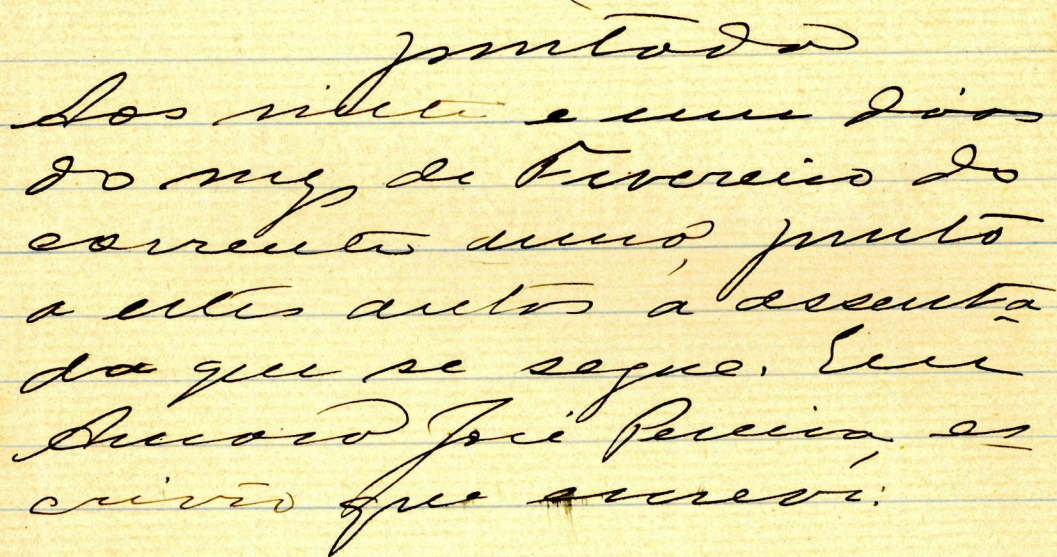 Juntada
Aos vinte e um dias
do mez de Fevereiro do
corrente anno, junto
a estes autos a assenta
da que se segue. Eu
Amaro José Pereira, es
crivão que escreví.